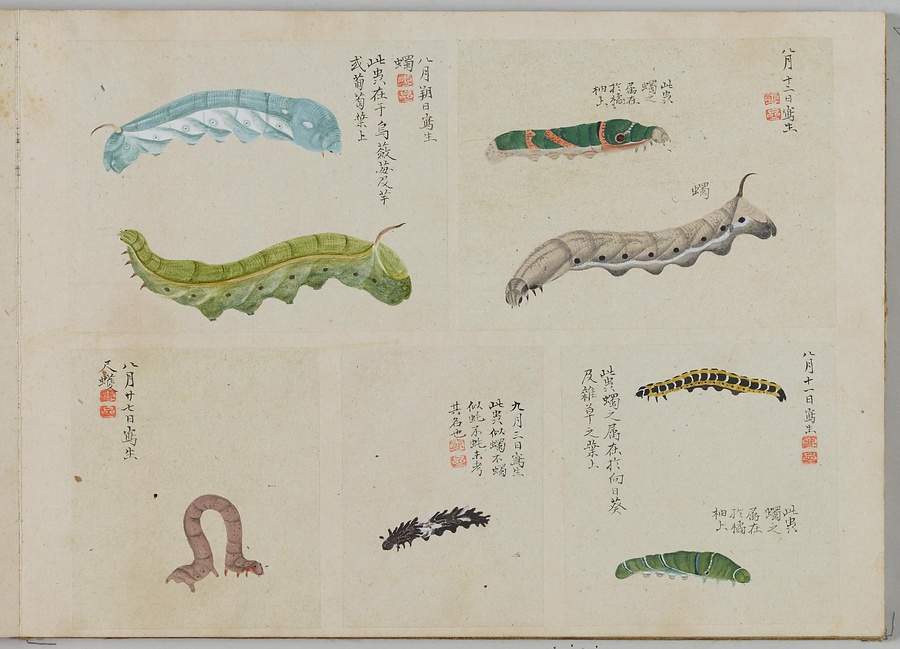 八月十二日寫生
此蟲
蠋之
屬在
於橘
柚上
蠋
八月朔日寫生
蠋
此蟲在于烏蘞苺及芋
或葡萄葉上
八月十一日寫生
此蟲蠋之屬在於向日葵
及雜草之葉上
此蟲
蠋之
屬在
於橘
柚上
九月三日寫生
此蟲似蠋不蠋
似蚝不蚝未考
其名也
八月廿七日寫生
尺蠖